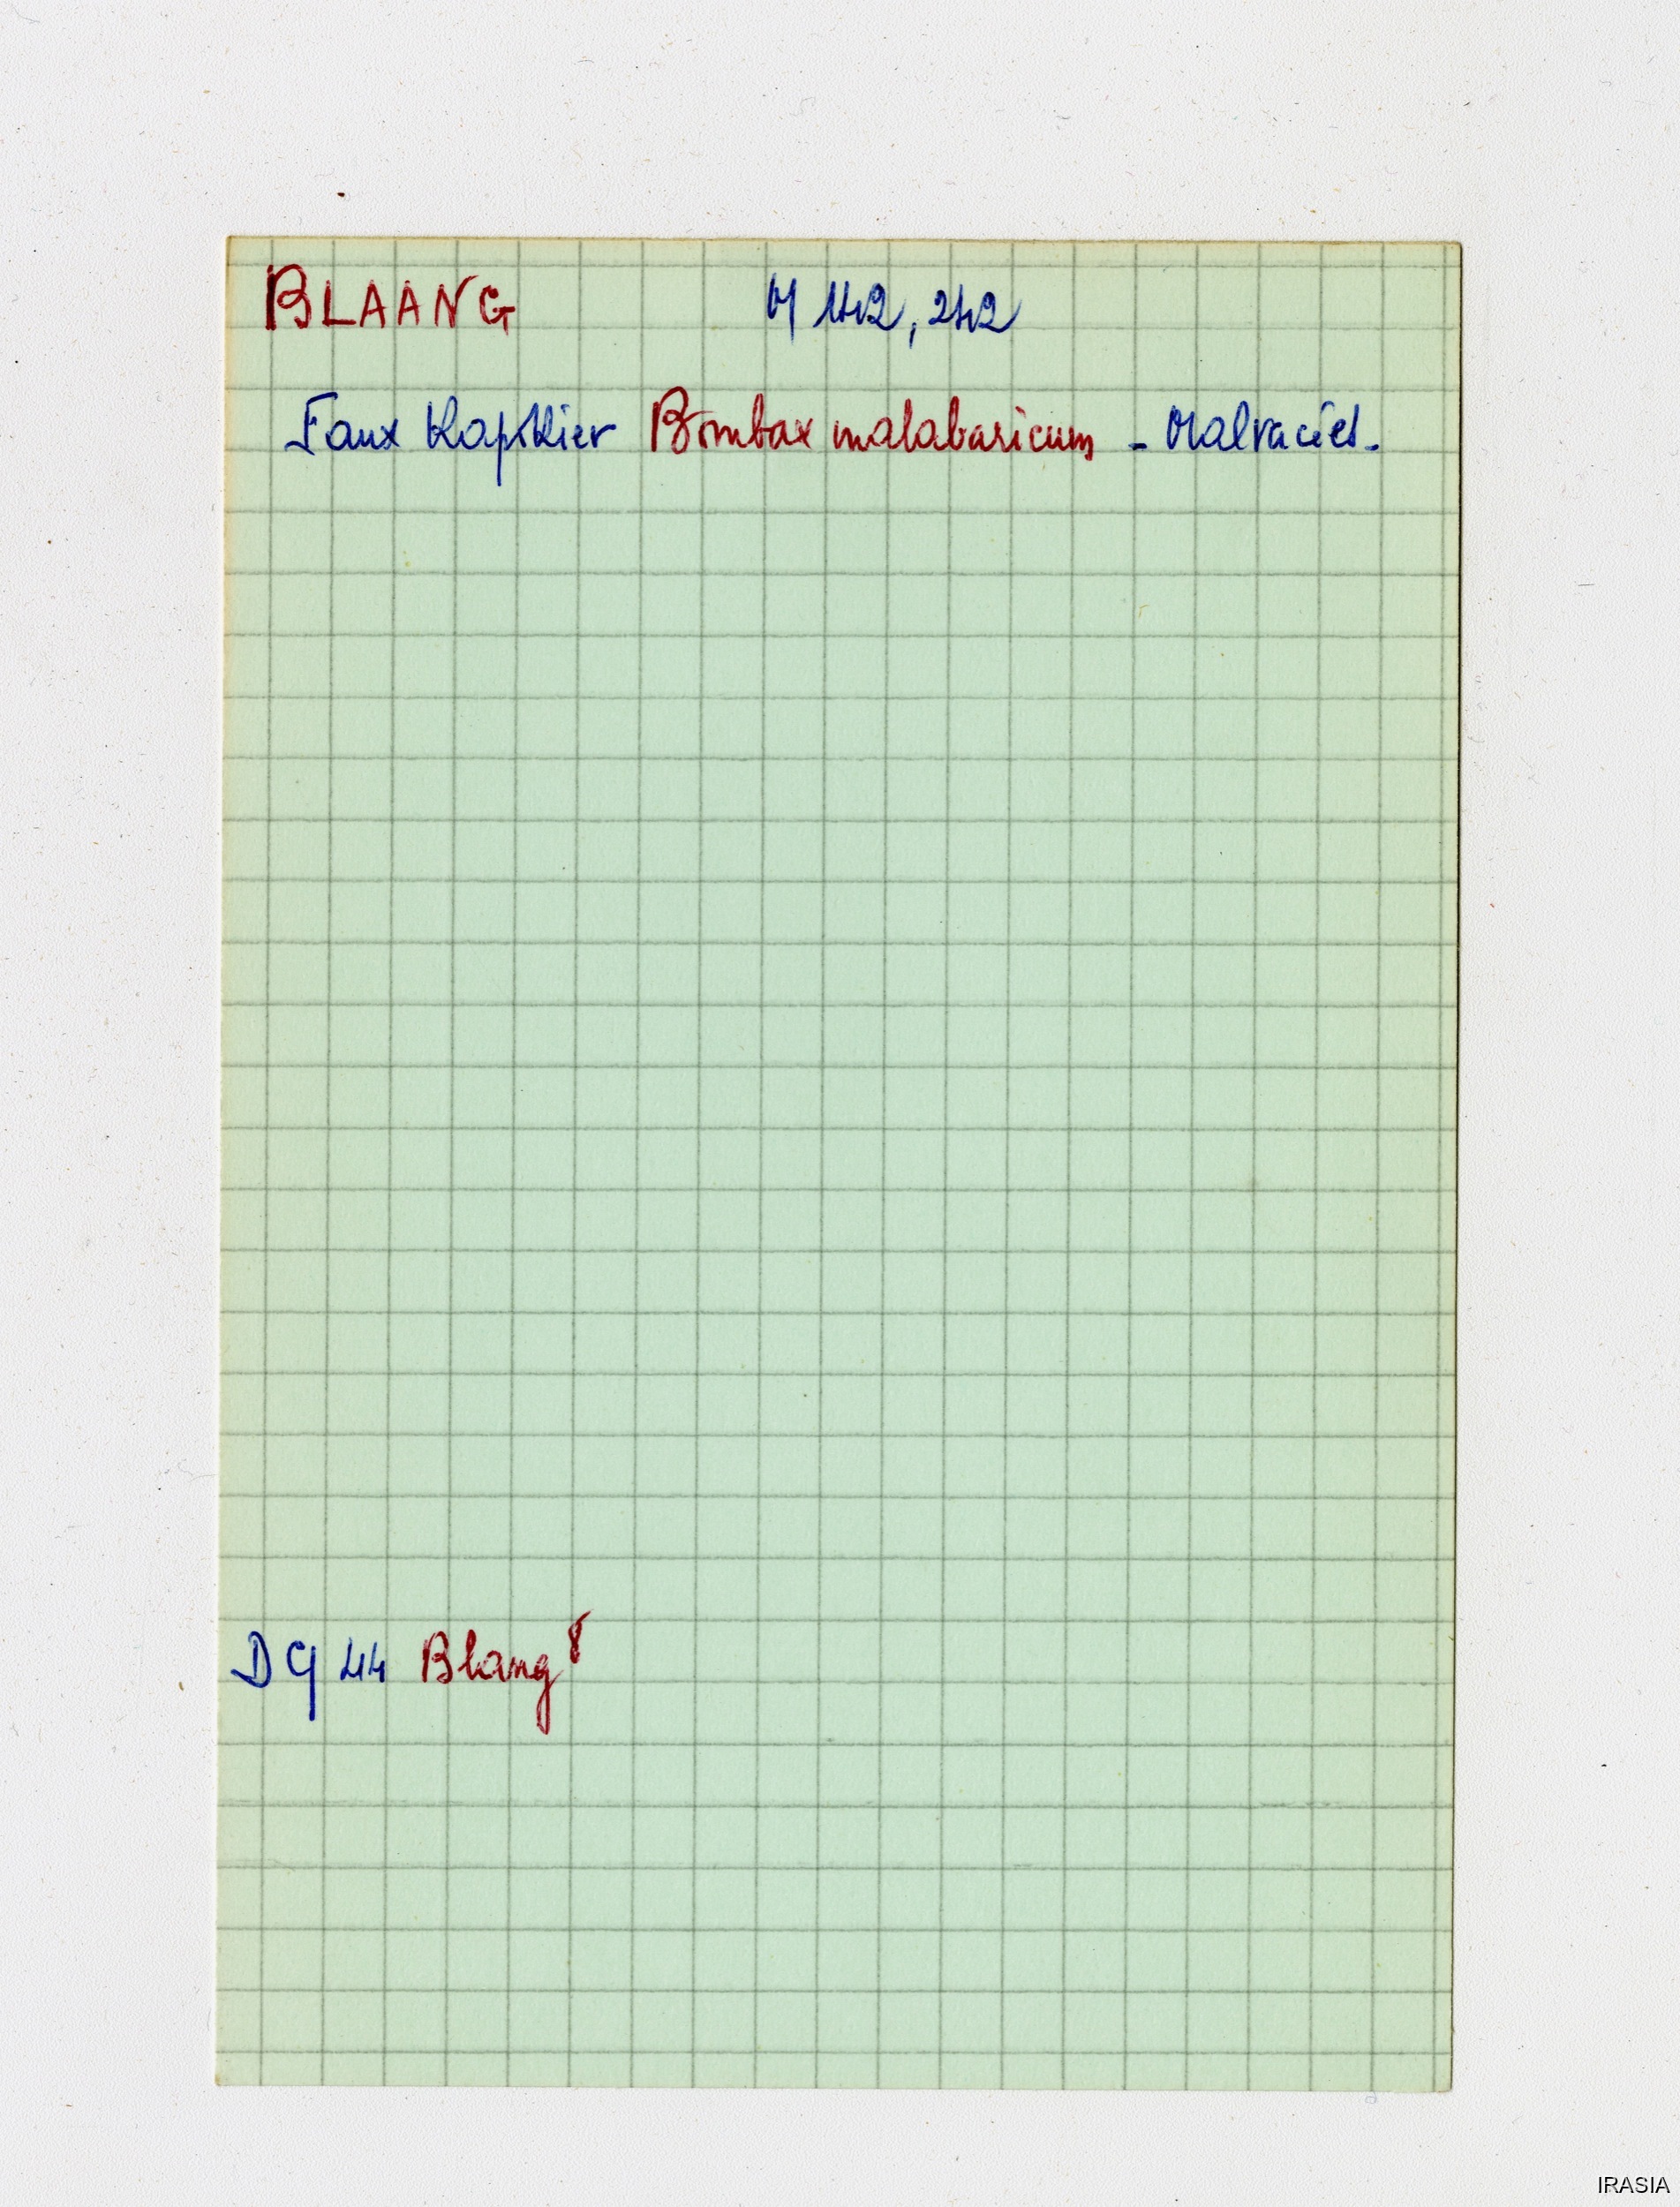 BLAANG M 142, 242
Faux Kapokier Bombax malabaricum - Malvacées -
DG 44 Blang
IRASIA